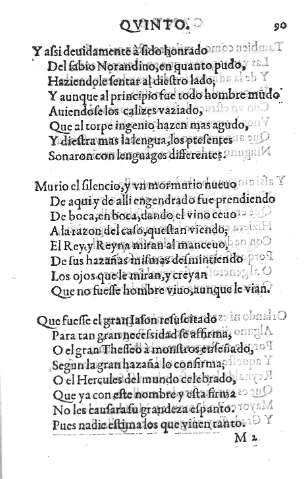 QVINTO. 90
Y assi deuidamente à sido honrado
Del sabio Norandino, en quanto pudo,
Haziendole sentar al diestro lado,
Y aunque al principio fue todo hombre mudo
Auiendose los calizes vaziado,
Que al torpe ingenio hazen mas agudo,
Y diestra mas la lengua, los presentes
Sonaron con lenguages differentes.
Murio el silencio, y vn mormurio nueuo
De aqui y de alli engendrado fue prendiendo
De boca, en boca, dando el vino ceuo
A la razon del caso, questan viendo;
El Rey, y Reyna miran al manceuo,
De sus hazañas mismas desmintiendo
Los ojos que le miran, y creyan
Que no fuesse hombre viuo, aunque le vian.
Que fuesse el gran Iason resuscitado
Para tan gran necessidad se affirma,
O el gran Theseo à monstros enseñado,
Segun la gran hazaña lo confirma;
O el Hercules del mundo celebrado,
Que ya con este nombre y esta firma
No les causara su grandeza espanto.
Pues nadie estima los que viuen tanto.
M 2